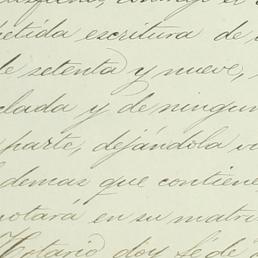 etida escritura de
de setenta y nueve,
clada y de ningun
parte, dejándola
demas que contiene
notará en su matri
Notario doy fé de